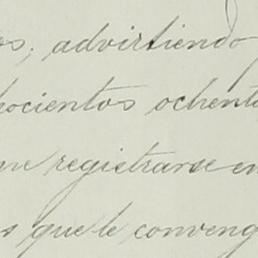 os; advirtiendo
hocientos ochent
registrarse en
s que le conveng